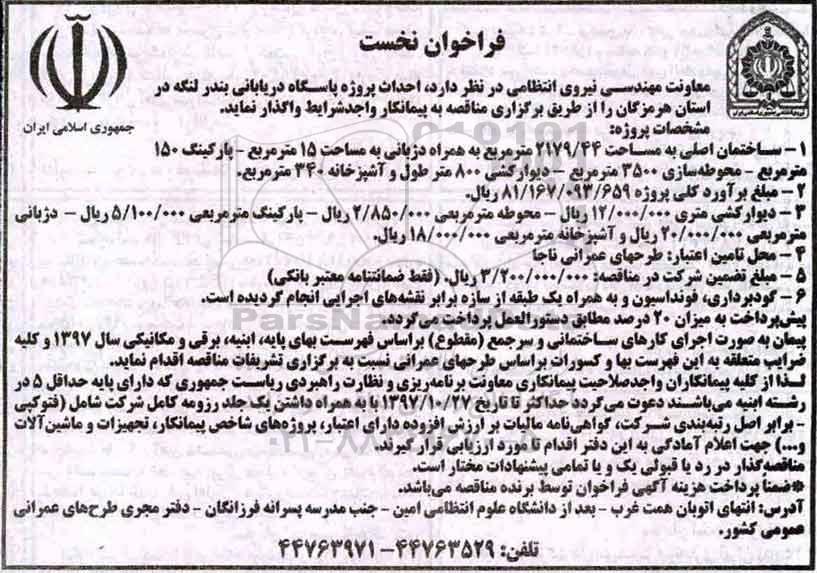 فراخوان نخست
جمهوری اسلامی ایران
معاونت مهندسی نیروی انتظامی در نظر دارد، احداث پروژه پاسگاه دریابانی بندر لنگه در
استان هرمزگان را از طریق برگزاری مناقصه به پیمانکار واجدشرایط واگذار نماید.
مشخصات پروژه:
۱- ساختمان اصلی به مساحت ۲۱۷۹/۴۴ مترمربع به همراه دژبانی به مساحت ۱۵ مترمربع - پارکینگ ۱۵۰
مترمربع - محوطه‌سازی ۳۵۰۰ مترمربع - دیوارکشی ۸۰۰ متر طول و آشپزخانه ۳۴۰ مترمربع.
۲- مبلغ برآورد کلی پروژه ۸۱/۱۶۷/۰۹۳/۶۵۹ ریال.
۳- دیوارکشی متری ۱۲/۰۰۰/۰۰۰ ریال - محوطه مترمربعی ۲/۸۵۰/۰۰۰ ریال - پارکینگ مترمربعی ۵/۱۰۰/۰۰۰ ریال - دژبانی
مترمربعی ۲۰/۰۰۰/۰۰۰ ریال و آشپزخانه مترمربعی ۱۸/۰۰۰/۰۰۰ ریال.
۴- محل تامین اعتبار: طرحهای عمرانی ناجا
۵- مبلغ تضمین شرکت در مناقصه: ۳/۲۰۰/۰۰۰/۰۰۰ ریال. (فقط ضمانتنامه معتبر بانکی)
۶- گودبرداری، فونداسیون و به همراه یک طبقه از سازه برابر نقشه‌های اجرایی انجام گردیده است.
پیش‌پرداخت به میزان ۲۰ درصد مطابق دستورالعمل پرداخت می‌گردد.
پیمان به صورت اجرای کارهای ساختمانی و سرجمع (مقطوع) براساس فهرست بهای پایه، ابنیه، برقی و مکانیکی سال ۱۳۹۷ و کلیه
ضرایب متعلقه به این فهرست بها و کسورات براساس طرحهای عمرانی نسبت به برگزاری تشریفات مناقصه اقدام نماید.
لـذا از کلیه پیمانکاران واجدصلاحیت پیمانکاری معاونت برنامه‌ریزی و نظارت راهبردی ریاست جمهوری که دارای پایه حداقل ۵ در
رشته ابنیه می‌باشند دعوت می‌گردد حداکثر تا تاریخ ۱۳۹۷/۱۰/۲۷ با به همراه داشتن یک جلد رزومه کامل شرکت شامل (فتوکپی
- برابر اصل رتبه‌بندی شرکت، گواهی‌نامه مالیات بر ارزش افزوده دارای اعتبار، پروژه‌های شاخص پیمانکار، تجهیزات و ماشین‌آلات
و...) جهت اعلام آمادگی به این دفتر اقدام تا مورد ارزیابی قرار گیرند.
مناقصه‌گذار در رد یا قبولی یک و یا تمامی پیشنهادات مختار است.
*ضمناً پرداخت هزینه آگهی فراخوان توسط برنده مناقصه می‌باشد.
آدرس: انتهای اتوبان همت غرب - بعد از دانشگاه علوم انتظامی امین - جنب مدرسه پسرانه فرزانگان - دفتر مجری طرح‌های عمرانی
عمومی کشور.
تلفن: ۴۴۷۶۳۵۲۹- ۴۴۷۶۳۹۷۱